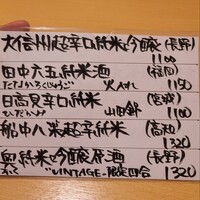 大信州超辛口純米吟醸(長野)
1100
田中六五純米酒(福岡)
たなかろくじゅうご 火入れ 1150
日高見辛口純米(宮城)
ひだかみ 山田錦 1100
船中八策超辛純米(高知)
1320
奥純米吟醸原酒(長野)
"VINTAGE 限定四合 1320